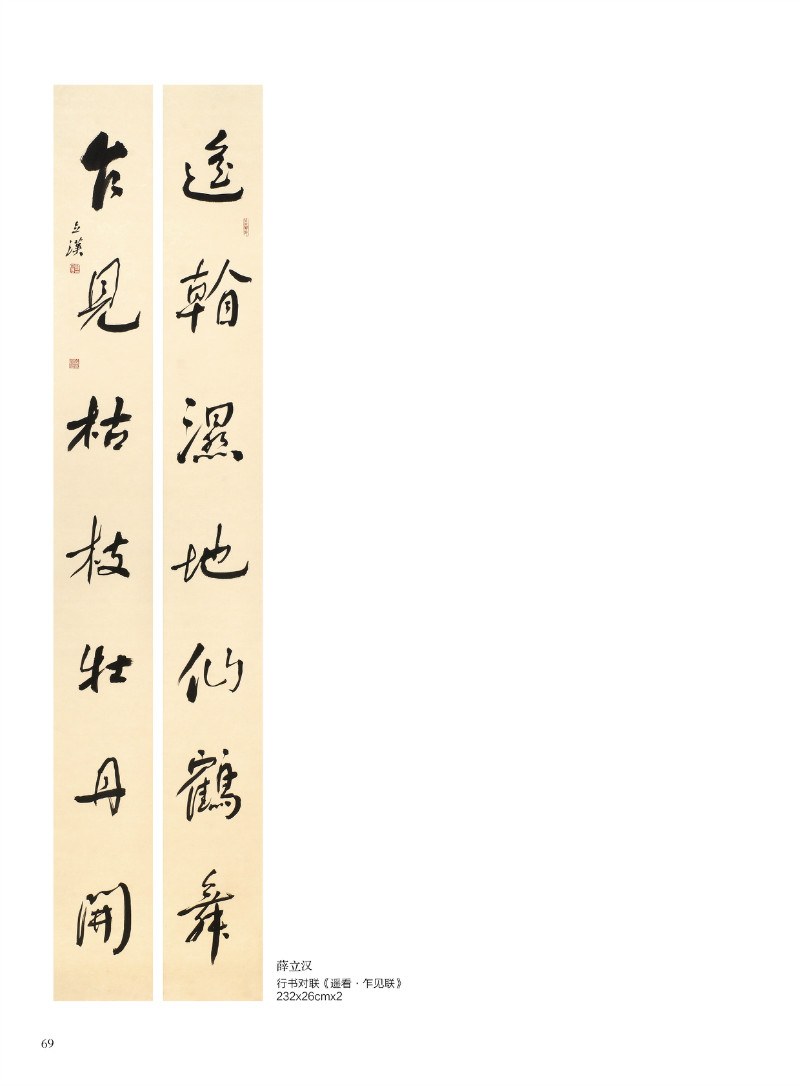 遙看濕地仙鶴舞
乍見枯枝牡丹開
立漢
薛立汉
行书对联《遥看·乍见联》
232x26cmx2
69